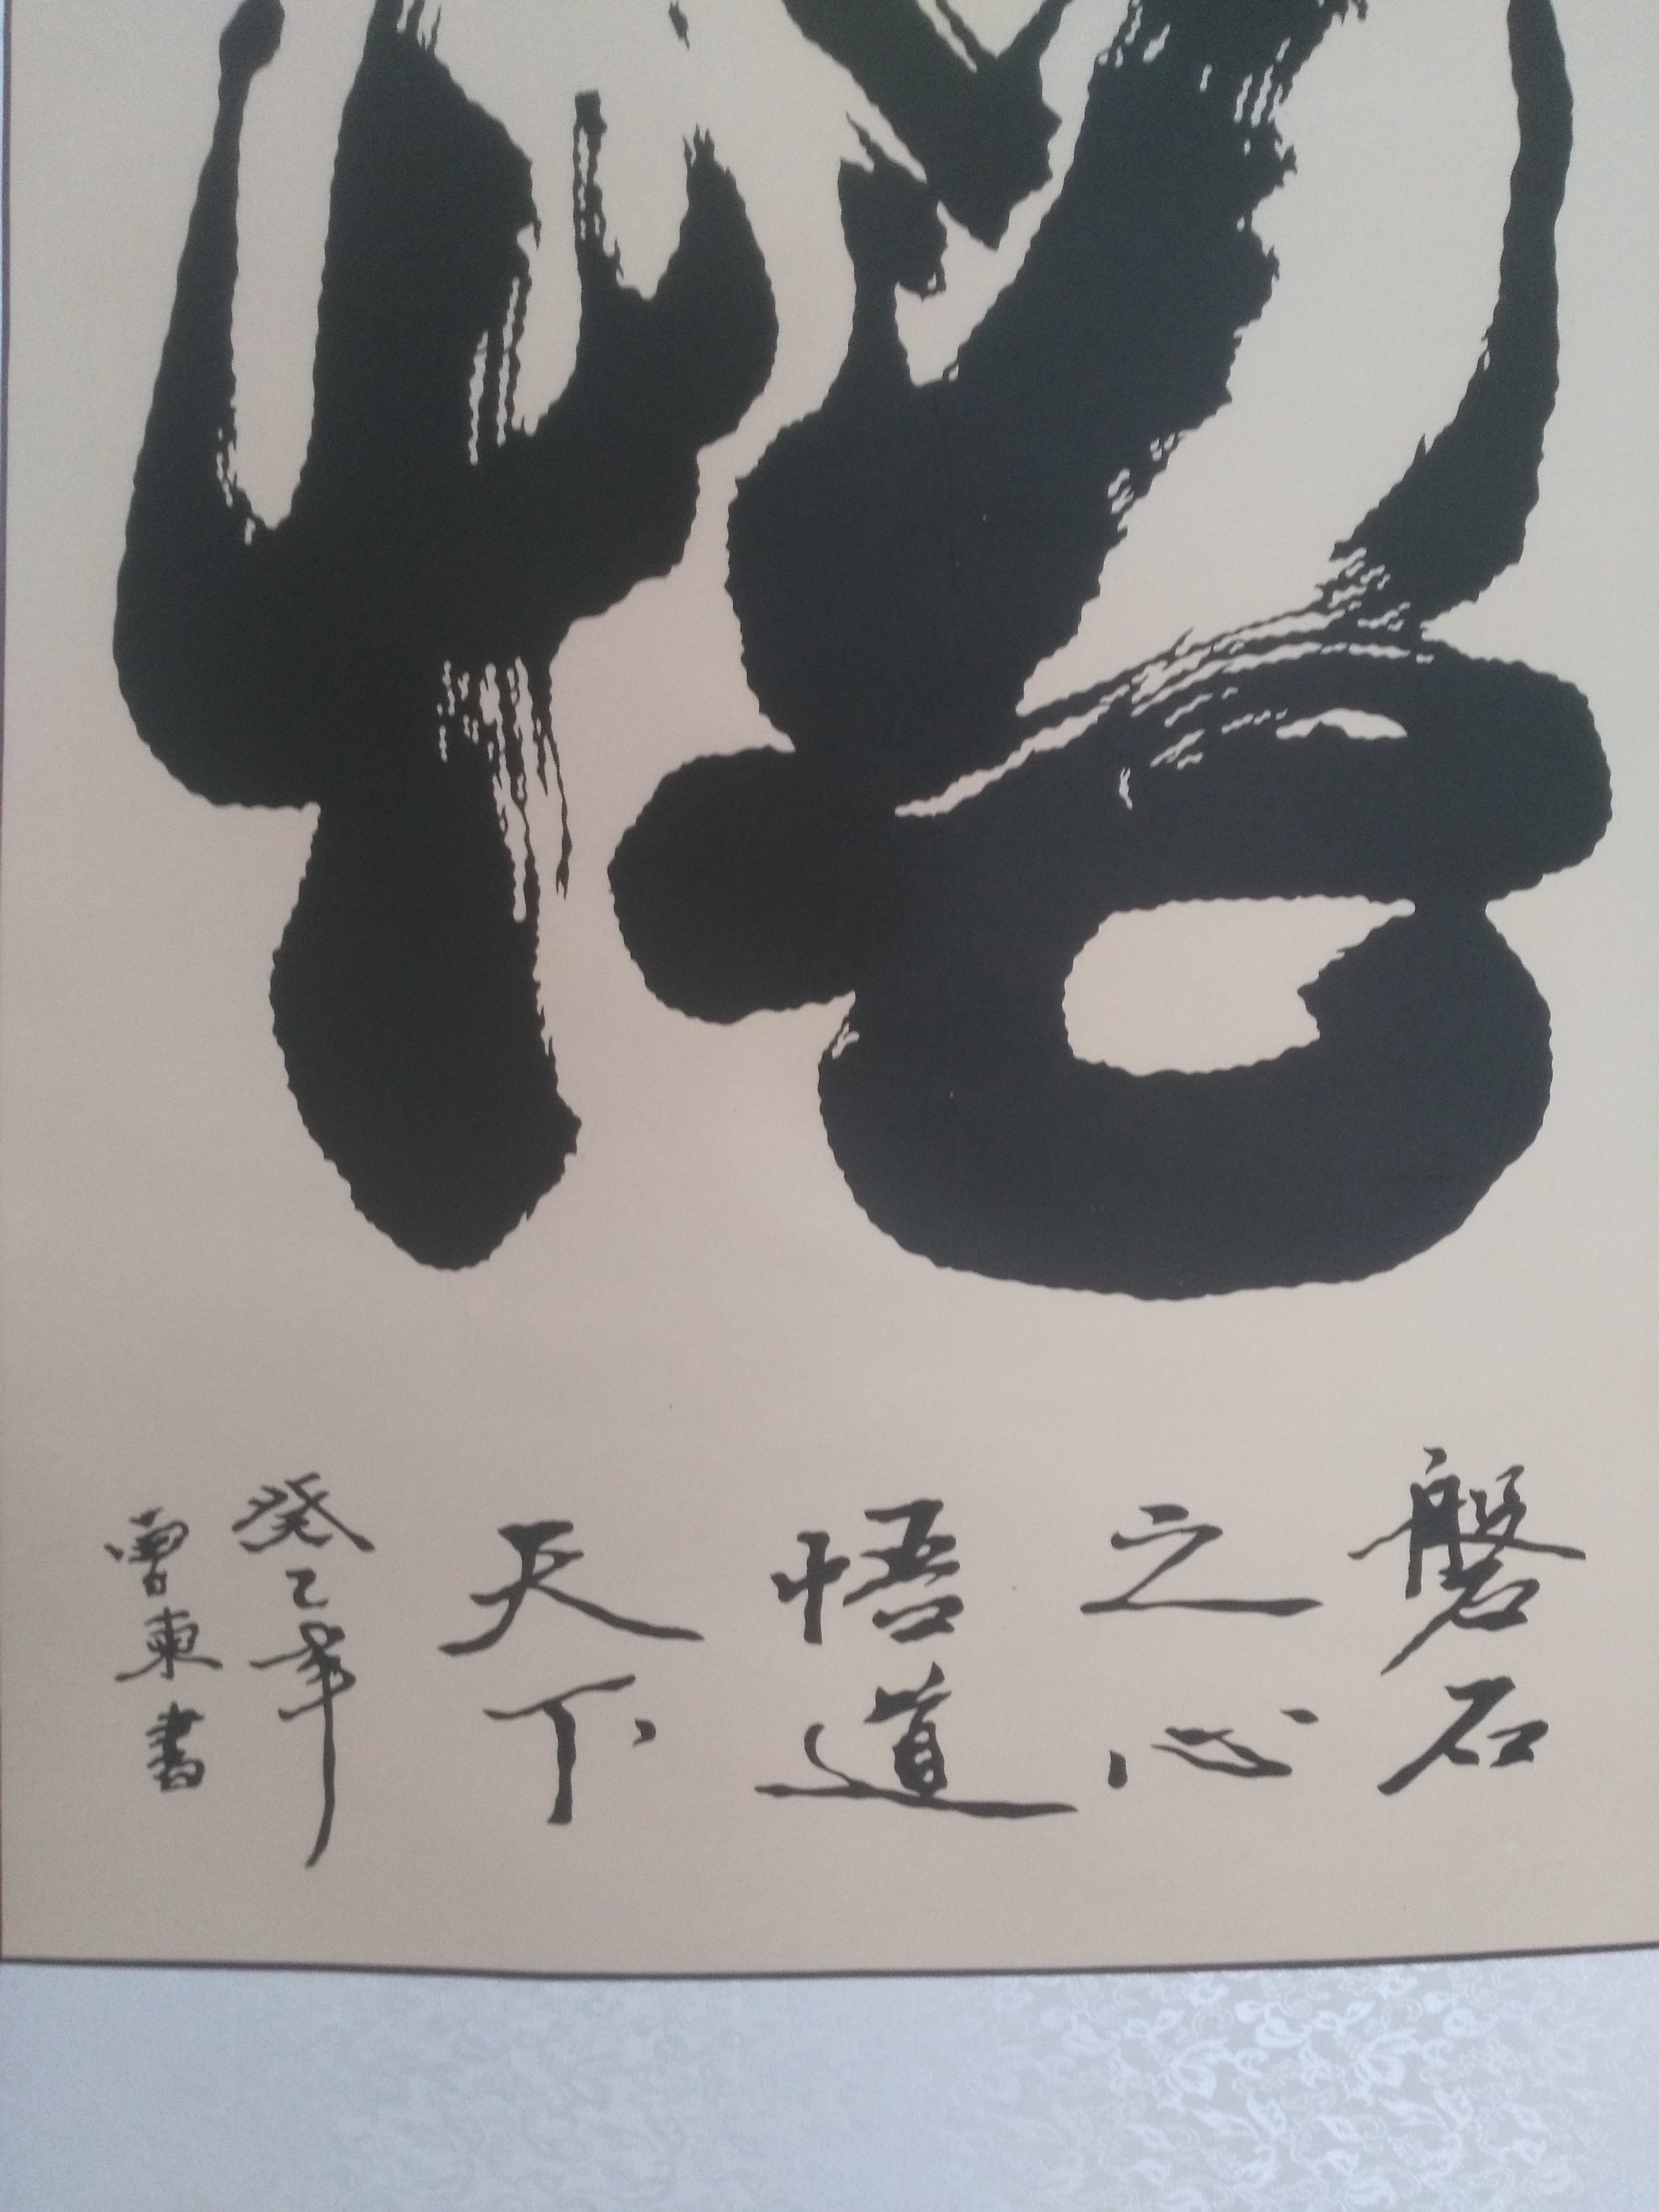 磐石
之心
悟道
天下
癸巳年
曹東書